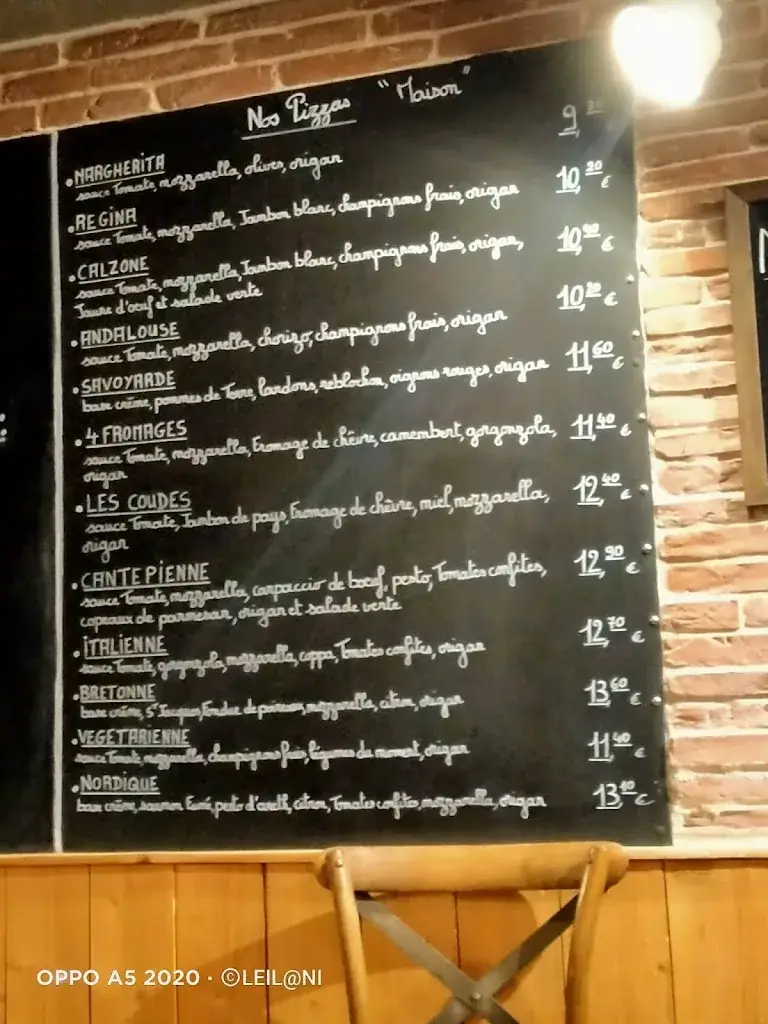 Nos Pizzas "Maison"
• MARGHERITA 9
sauce Tomate, mozzarella, olives, origan
• REGINA 10,20 €
sauce Tomate, mozzarella, Jambon blanc, champignons frais, origan
• CALZONE 10,90 €
sauce Tomate, mozzarella, Jambon blanc, champignons frais, origan,
Jaune d'oeuf et salade verte
• ANDALOUSE 10,20 €
sauce Tomate, mozzarella, chorizo, champignons frais, origan
• SAVOYARDE 11,60 €
base crème, pommes de Terre, lardons, reblochon, oignons rouges, origan
• 4 FROMAGES 11,40 €
sauce Tomate, mozzarella, Fromage de chèvre, camembert, gorgonzola,
origan
• LES COUDES 12,40 €
sauce Tomate, Jambon de pays, Fromage de chèvre, miel, mozzarella,
origan
• CANTEPIENNE 12,90 €
sauce Tomate, mozzarella, carpaccio de boeuf, pesto, Tomates confites,
copeaux de parmesan, origan et salade verte
• ITALIENNE 12,70 €
sauce Tomate, gorgonzola, mozzarella, coppa, Tomates confites, origan
• BRETONNE 13,60 €
base crème, St Jacques, Fondue de poireaux, mozzarella, citron, origan
• VEGETARIENNE 11,40 €
sauce Tomate, mozzarella, champignons frais, légumes du moment, origan
• NORDIQUE 13, €
base crème, saumon Fumé, pesto d'aneth, citron, Tomates confites, mozzarella, origan
OPPO A5 2020 · ©LEIL@NI